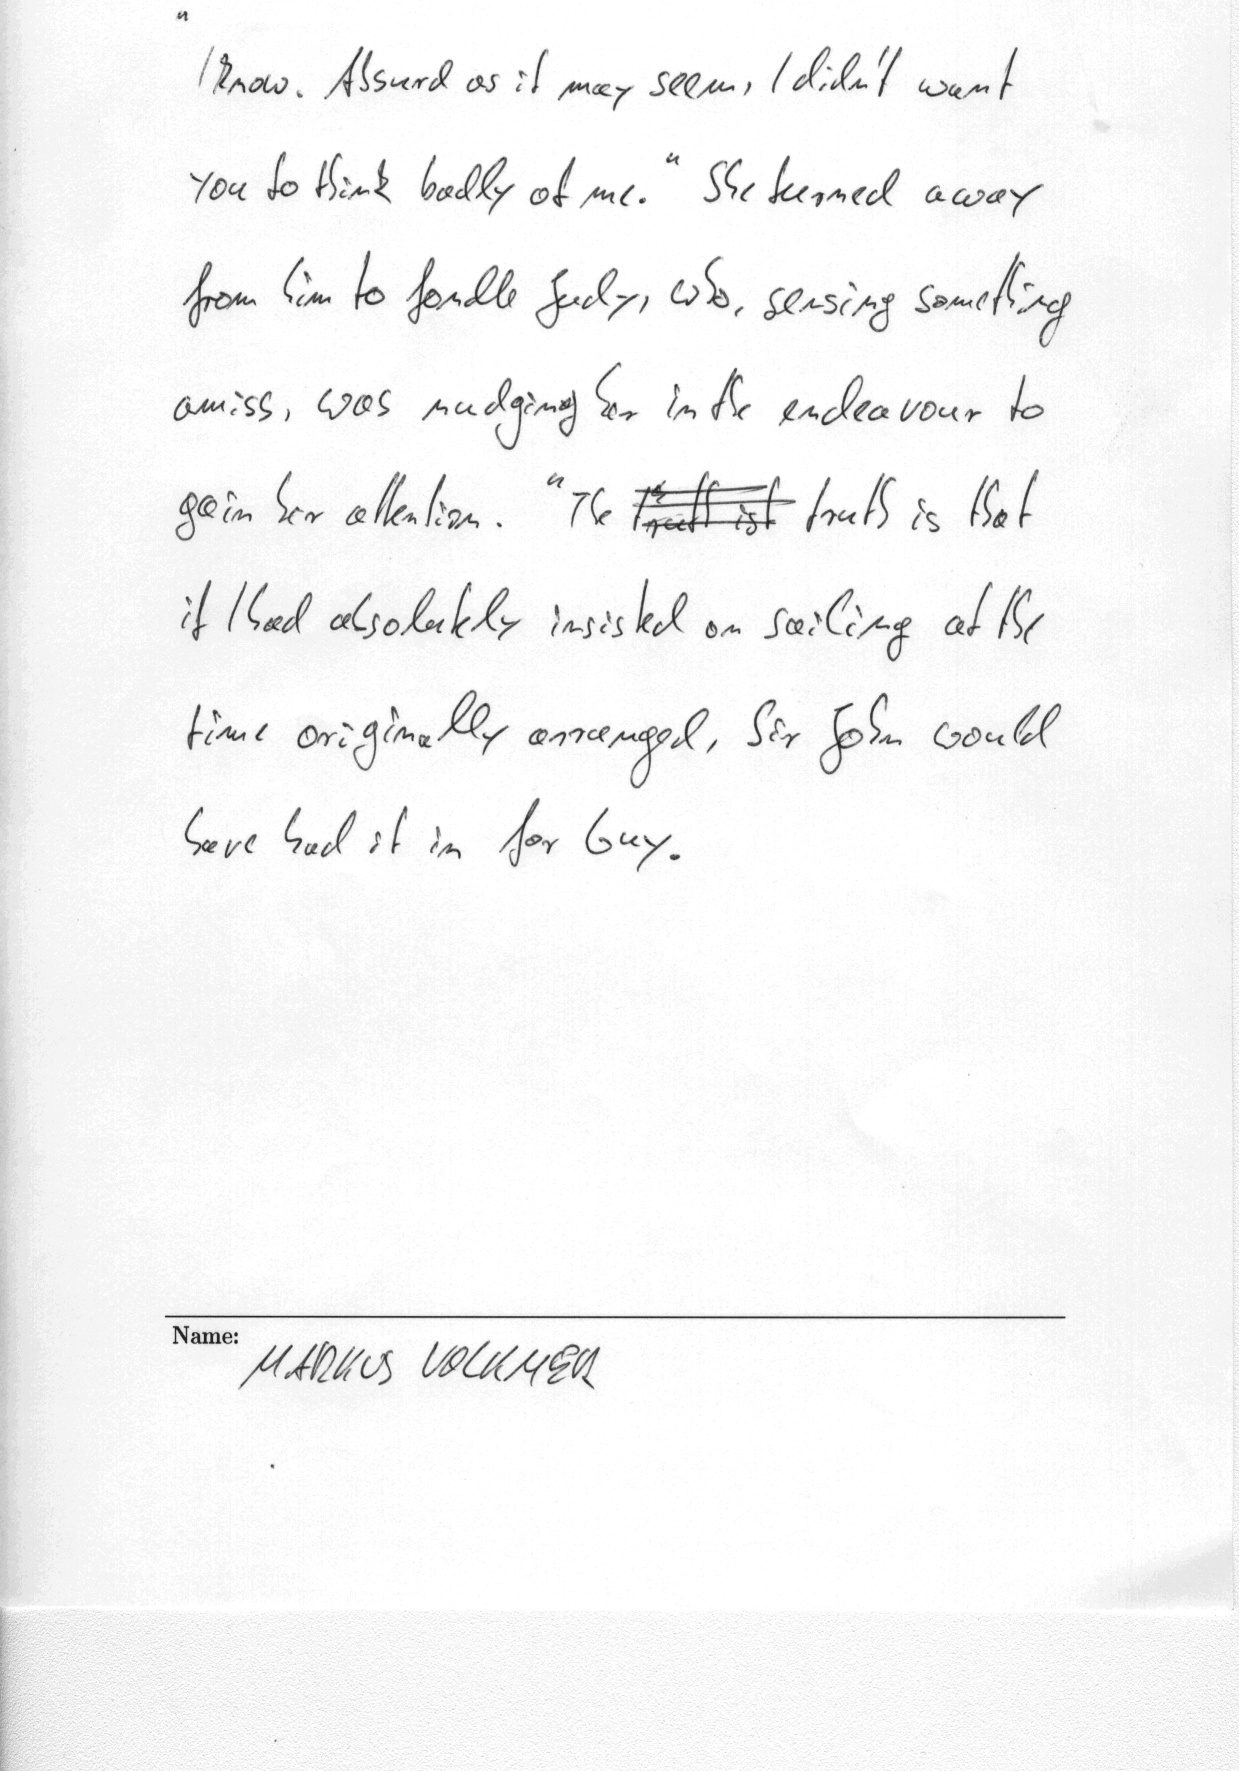 "
I know. Absurd as it may seem, I didn't want
you to think badly of me." She turned away
from him to fondle Judy, who, sensing something
amiss, was nudging her in the endeavour to
gain her attention. "The truth is that
if I had absolutely insisted on sailing at the
time originally arranged, Sir John would
have had it in for Guy.
Name:
MARKUS VOLKMER